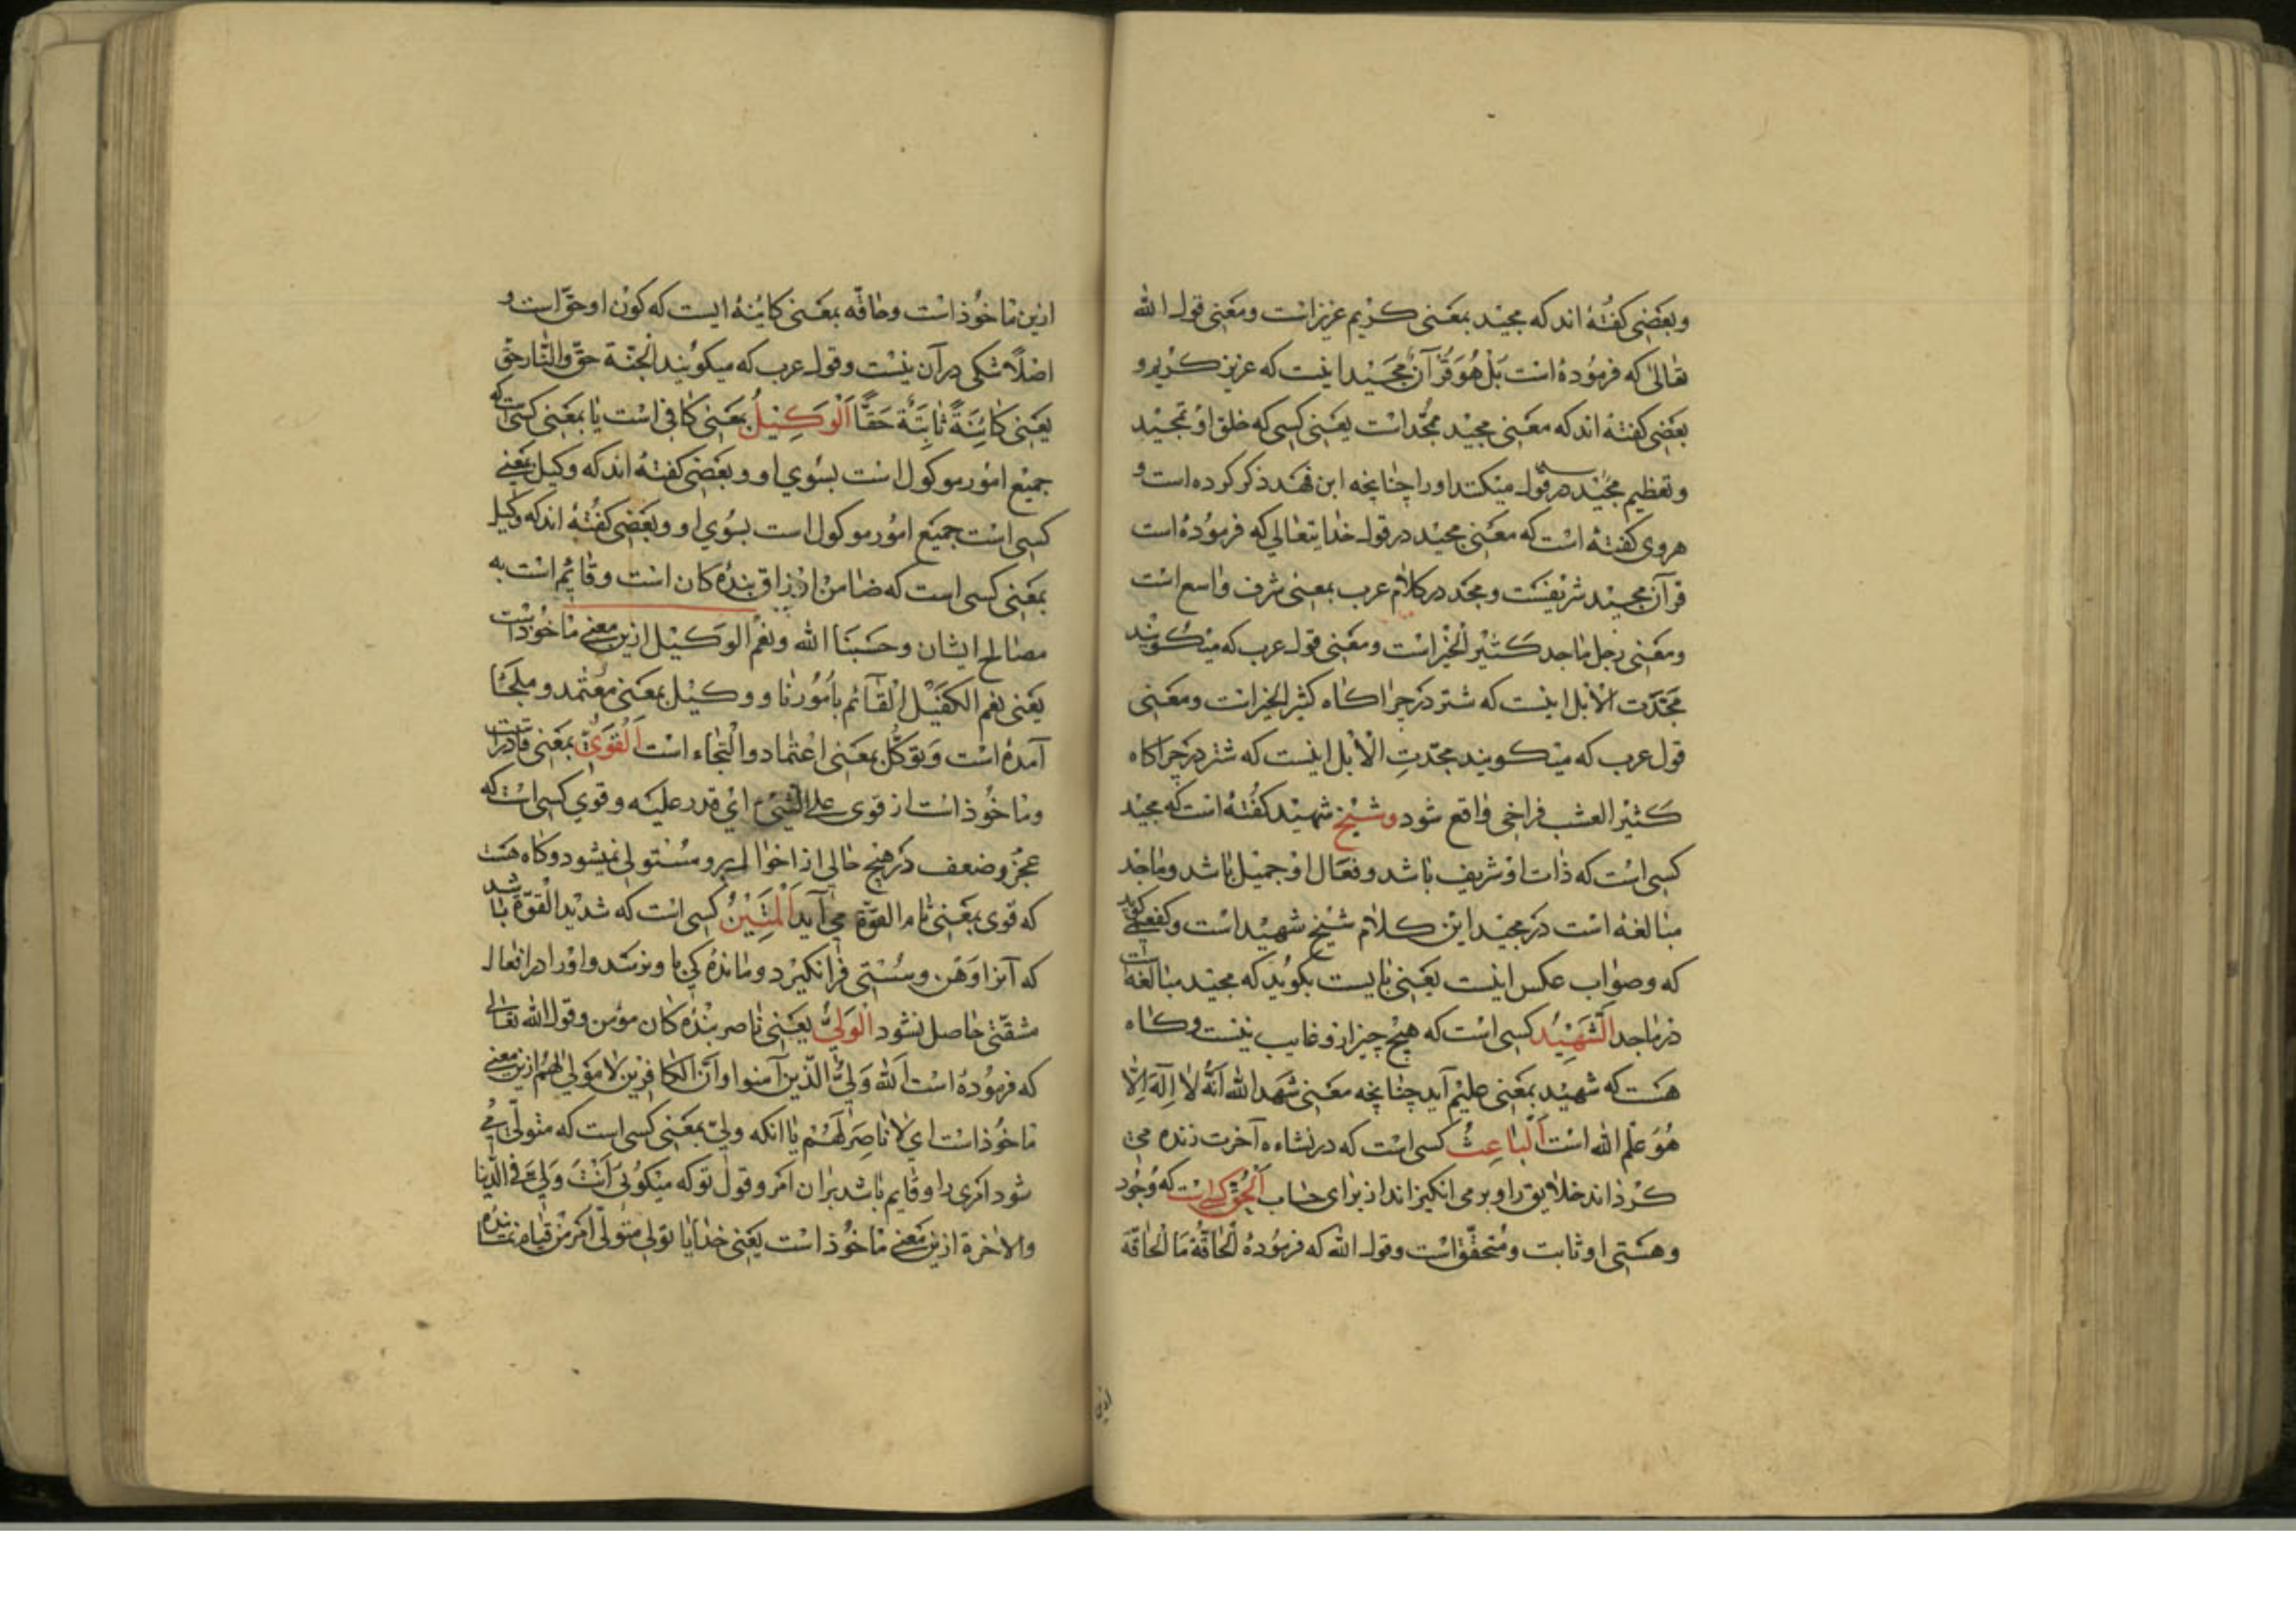 وبعضی کفته اند که مجید بمعنی کریم عزیز است ومعنی قول الله
تعالی که فرموده است بل هو قرآن مجید اینست که عزیز کریم و
بعضی کفته اند که معنی مجید ممجّد است یعنی کسی که خلق او تمجید
وتعظیم میکند اورا چنانچه ابن فهد ذکر کرده است و
هروی کفته است که معنی مجید در قول خدایتعالی که فرموده است
قرآن مجید شریفست ومجد در کلام عرب بمعنی شرف واسع است
ومعنی رجل ماجد کثیر الخیر است ومعنی قول عرب که میکویند
مجّدت الابل اینست که شتر در چراکاه کثیر الخیر است ومعنی
قول عرب که میکویند مجّدتِ الابل اینست که شتر در چراکاه
کثیر العشب فراخی واقع شود وشیخ شهید کفته است که مجید
کسی است که ذات او شریف باشد وفعال او جمیل باشد وماجد
مبالغه است در مجید این کلام شیخ شهید است وکفعمی کوید
که وصواب عکس اینست یعنی بایست بکوید که مجید مبالغه است
در ماجد الشهید کسی است که هیچ چیز ازو غایب نیست وکاه
هست که شهید بمعنی علیم آید چنانچه معنی شهد الله انّه لا اله الّا
هو علم الله است الباعث کسی است که در نشاءه آخرت زنده می
کرداند خلایق را وبرمی انکیزاند از برای حساب الحقّ کسی است که وجود
وهستی او ثابت ومتحقّق است وقول الله که فرموده الحاقّة ما الحاقّة
ازین
ازین ماخوذ است وحاقّه بمعنی کاینهٔ ایست که کون او حقّ است و
اصلاً شکی در آن نیست وقول عرب که میکویند الجنّة حقّ والنّار حقّ
یعنی کائنةً ثابتةً حقًّا الوکیل بمعنی کافی است یا بمعنی کسی است که
جمیع امور موکول است بسوی او وبعضی کفته اند که وکیل بمعنی
کسی است جمیع امور موکول است بسوی او وبعضی کفته اند که وکیل
بمعنی کسی است که ضامن ارزاق بنده کان است وقائم است به
مصالح ایشان وحسبنا الله ونعم الوکیل ازین معنی ماخوذ است
یعنی نعم الکفیل القائم بامورنا ووکیل بمعنی معتمد وملجأ
آمده است وتوکّل بمعنی اعتماد والتجاء است القویّ بمعنی قادر است
وماخوذ است از قوی علی الشیء ای قدر علیه وقوی کسی است که
عجز وضعف در هیچ حالی از احوال برو مستولی نمیشود وکاه هست
که قوی بمعنی تام القوّة می آید المتین کسی است که شدید القوّة باشد
که آنرا وهن وسستی فرا نکیرد ومانده کی باو نرسد واورا در افعال
مشقّتی حاصل نشود الولیّ یعنی ناصر بنده کان مؤمن وقول الله تعالی
که فرموده است الله ولیّ الّذین آمنوا وانّ الکافرین لا مولی لهم ازین معنی
ماخوذ است ای لا ناصر لهم یا آنکه ولیّ بمعنی کسی است که متولّی می
شود امری را وقایم باشد بران امر وقول تو که میکوئی انت ولیّی فی الدّنیا
والاخرة ازین معنی ماخوذ است یعنی خدایا تویی متولّی امر من